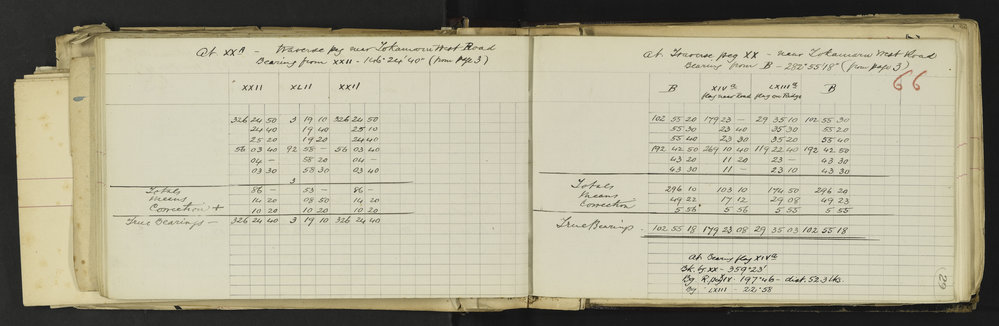 At XXA - Traverse peg near Tokomaru West Road
Bearing from XXII - 146° 24' 40" (from page 3)
XXII XLII XXII
326 24 50 3 19 10 326 24 50
24 40 19 40 25 10
25 20 19 20 24 40
56 03 40 92 58 - 56 03 40
04 - 58 20 04 -
03 30 58 30 03 40
3
Totals 86 - 53 - 86 -
Means 14 20 08 50 14 20
Correction + 10 20 10 20 10 20
True Bearings - 326 24 40 3 19 10 326 24 40
At Traverse peg XX - near Tokomaru West Road
Bearing from B - 282° 55' 18" (from page 3)
66
B XIVa LXIIIa B
flag near Road flag on Ridge
102 55 20 179 23 - 29 35 10 102 55 30
55 30 23 40 35 30 55 20
55 40 23 30 35 20 55 40
192 42 50 269 10 40 119 22 40 192 42 50
43 20 11 20 23 - 43 30
43 30 11 - 23 10 43 30
Totals 296 10 103 10 174 50 296 20
Means 49 22 17 12 29 08 49 23
Correction 5 56 5 56 5 55 5 55
True Bearings 102 55 18 179 23 08 29 35 03 102 55 18
At Bearing flag XIVa
Bk. bg XX - 359° 23'
Bg. R. peg IV - 197° 46 - dist. 52.3 lks.
Bg. LXIII - 22° 58
(29)